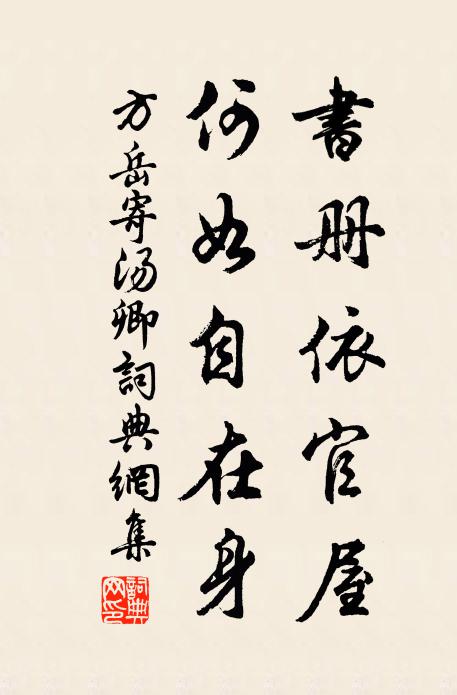 書册依官屋
何如自在身
方岳寄汤卿詞典網集
詞典网印